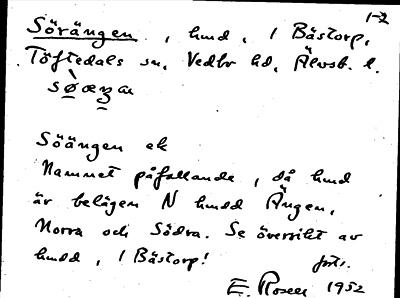 1-2
Sörängen, hmd, i Båstorp,
Töftedals sn, Vedbo hd, Älvsb. l.
Söängen ek
Namnet påfallande, då hmd
är belägen N hmdd Ängen,
Norra och Södra. Se översikt av
hmdd, i Båstorp!
E. Rosell 1952